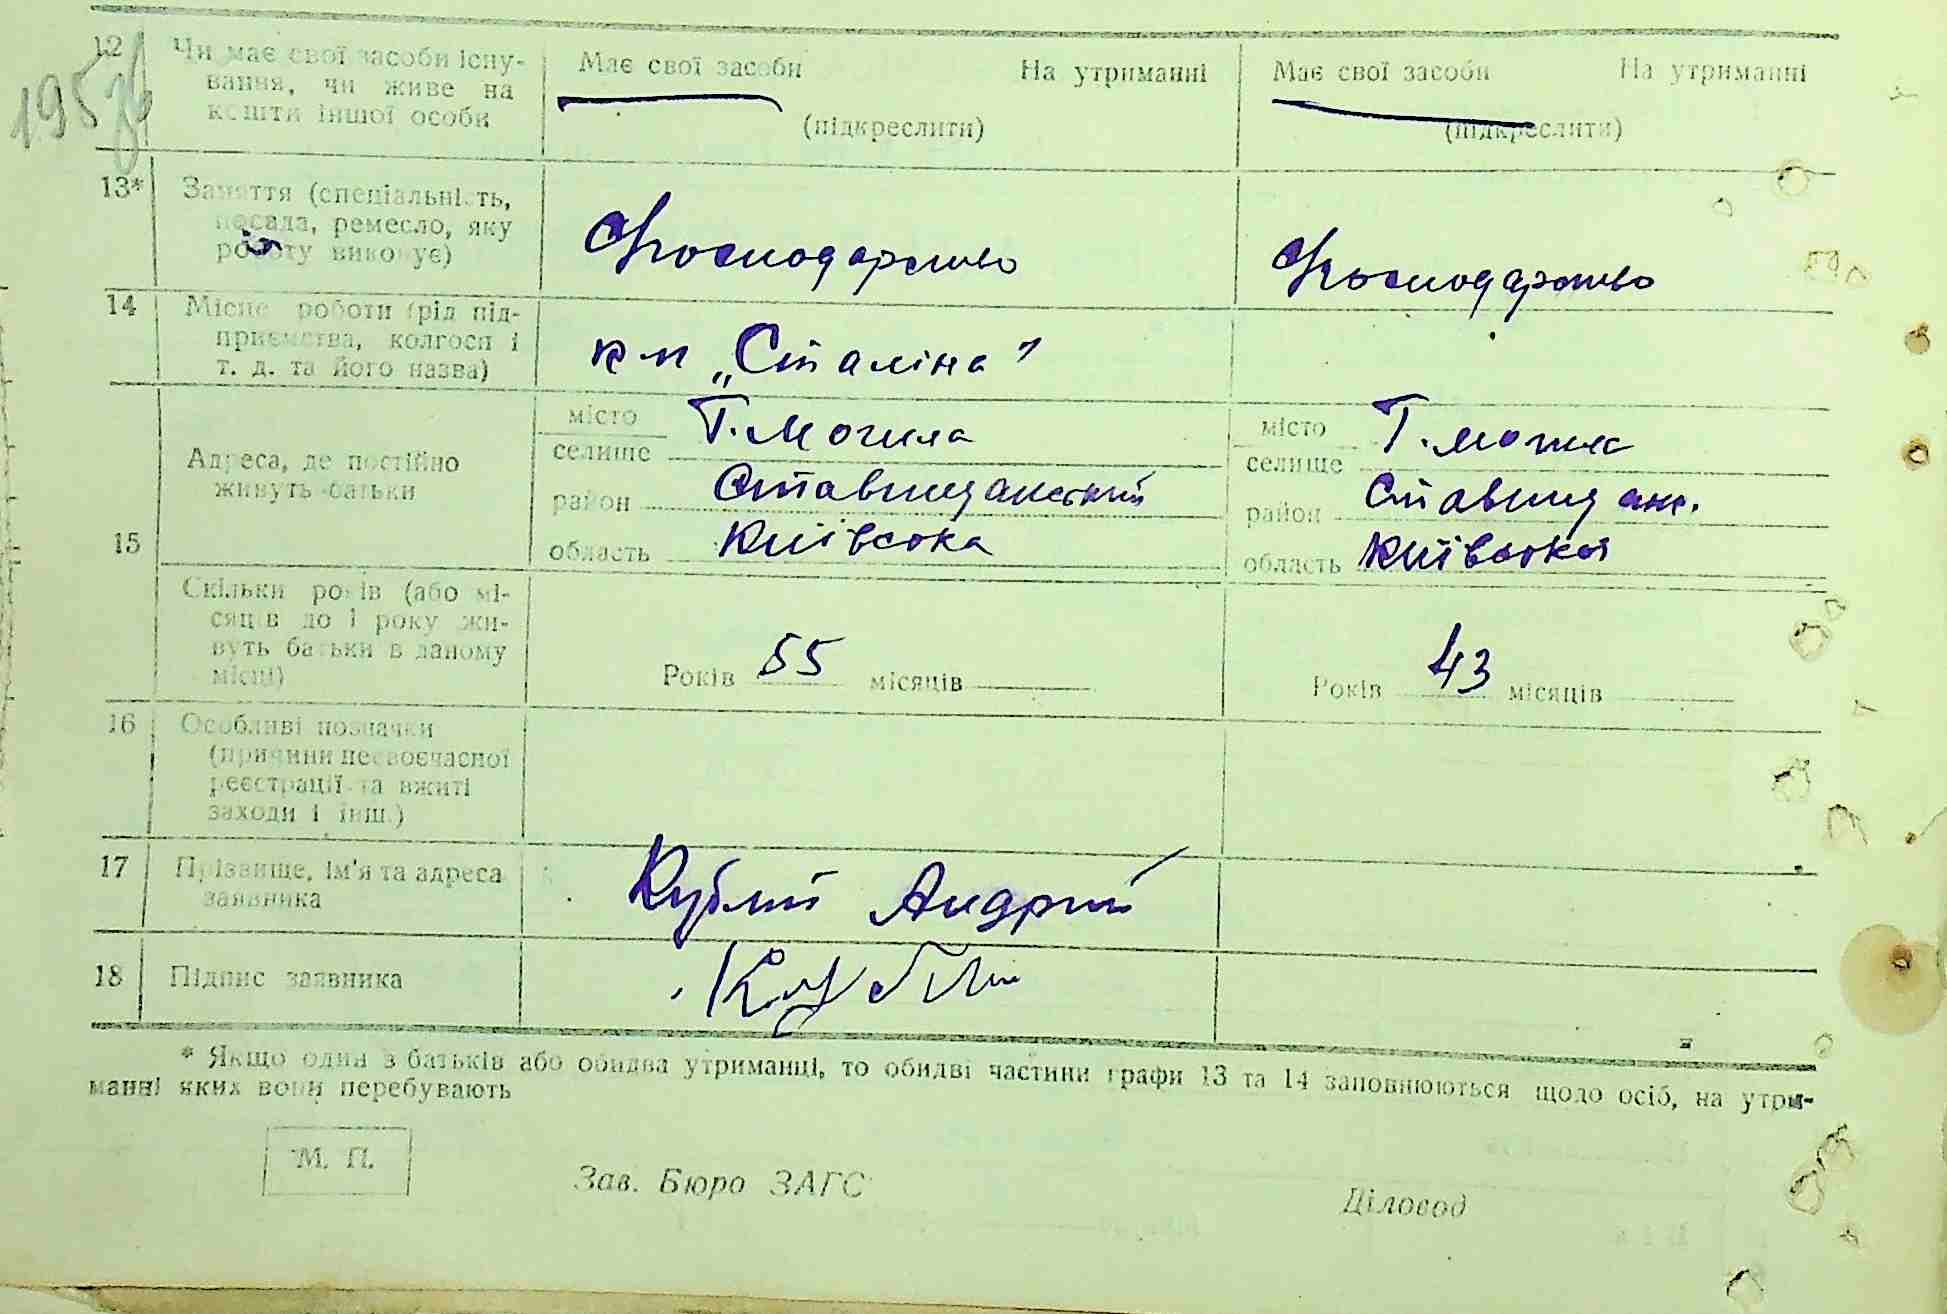 12 Чи має свої засоби існу- Має свої засоби На утриманні Має свої засоби На утриманні
вання, чи живе на
кошти іншої особи (підкреслити) (підкреслити)
195
13* Заняття (спеціальність,
посада, ремесло, яку
роботу виконує) Господарство Господарство
14 Місце роботи (рід під-
приємства, колгосп і к-п „Сталіна"
т. д. та його назва)
15 Адреса, де постійно
живуть батьки
місто
селище Т. Могила
район Ставищанський
область Київська
місто
селище Т. Могила
район Ставищанс.
область Київської
Скільки років (або мі-
сяців до 1 року жи-
вуть батьки в даному
місці)
Років 55 місяців Років 43 місяців
16 Особливі позначки
(причини несвоєчасної
реєстрації та вжиті
заходи і інш.)
17 Прізвище, ім'я та адреса
заявника Кублій Андрій
18 Підпис заявника
* Якщо один з батьків або обидва утриманці, то обидві частини графи 13 та 14 заповнюються щодо осіб, на утри-
манні яких вони перебувають
М. П.
Зав. Бюро ЗАГС Діловод